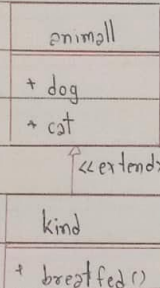 animall
+ dog
+ cat
<<extend>
kind
+ breatfed()